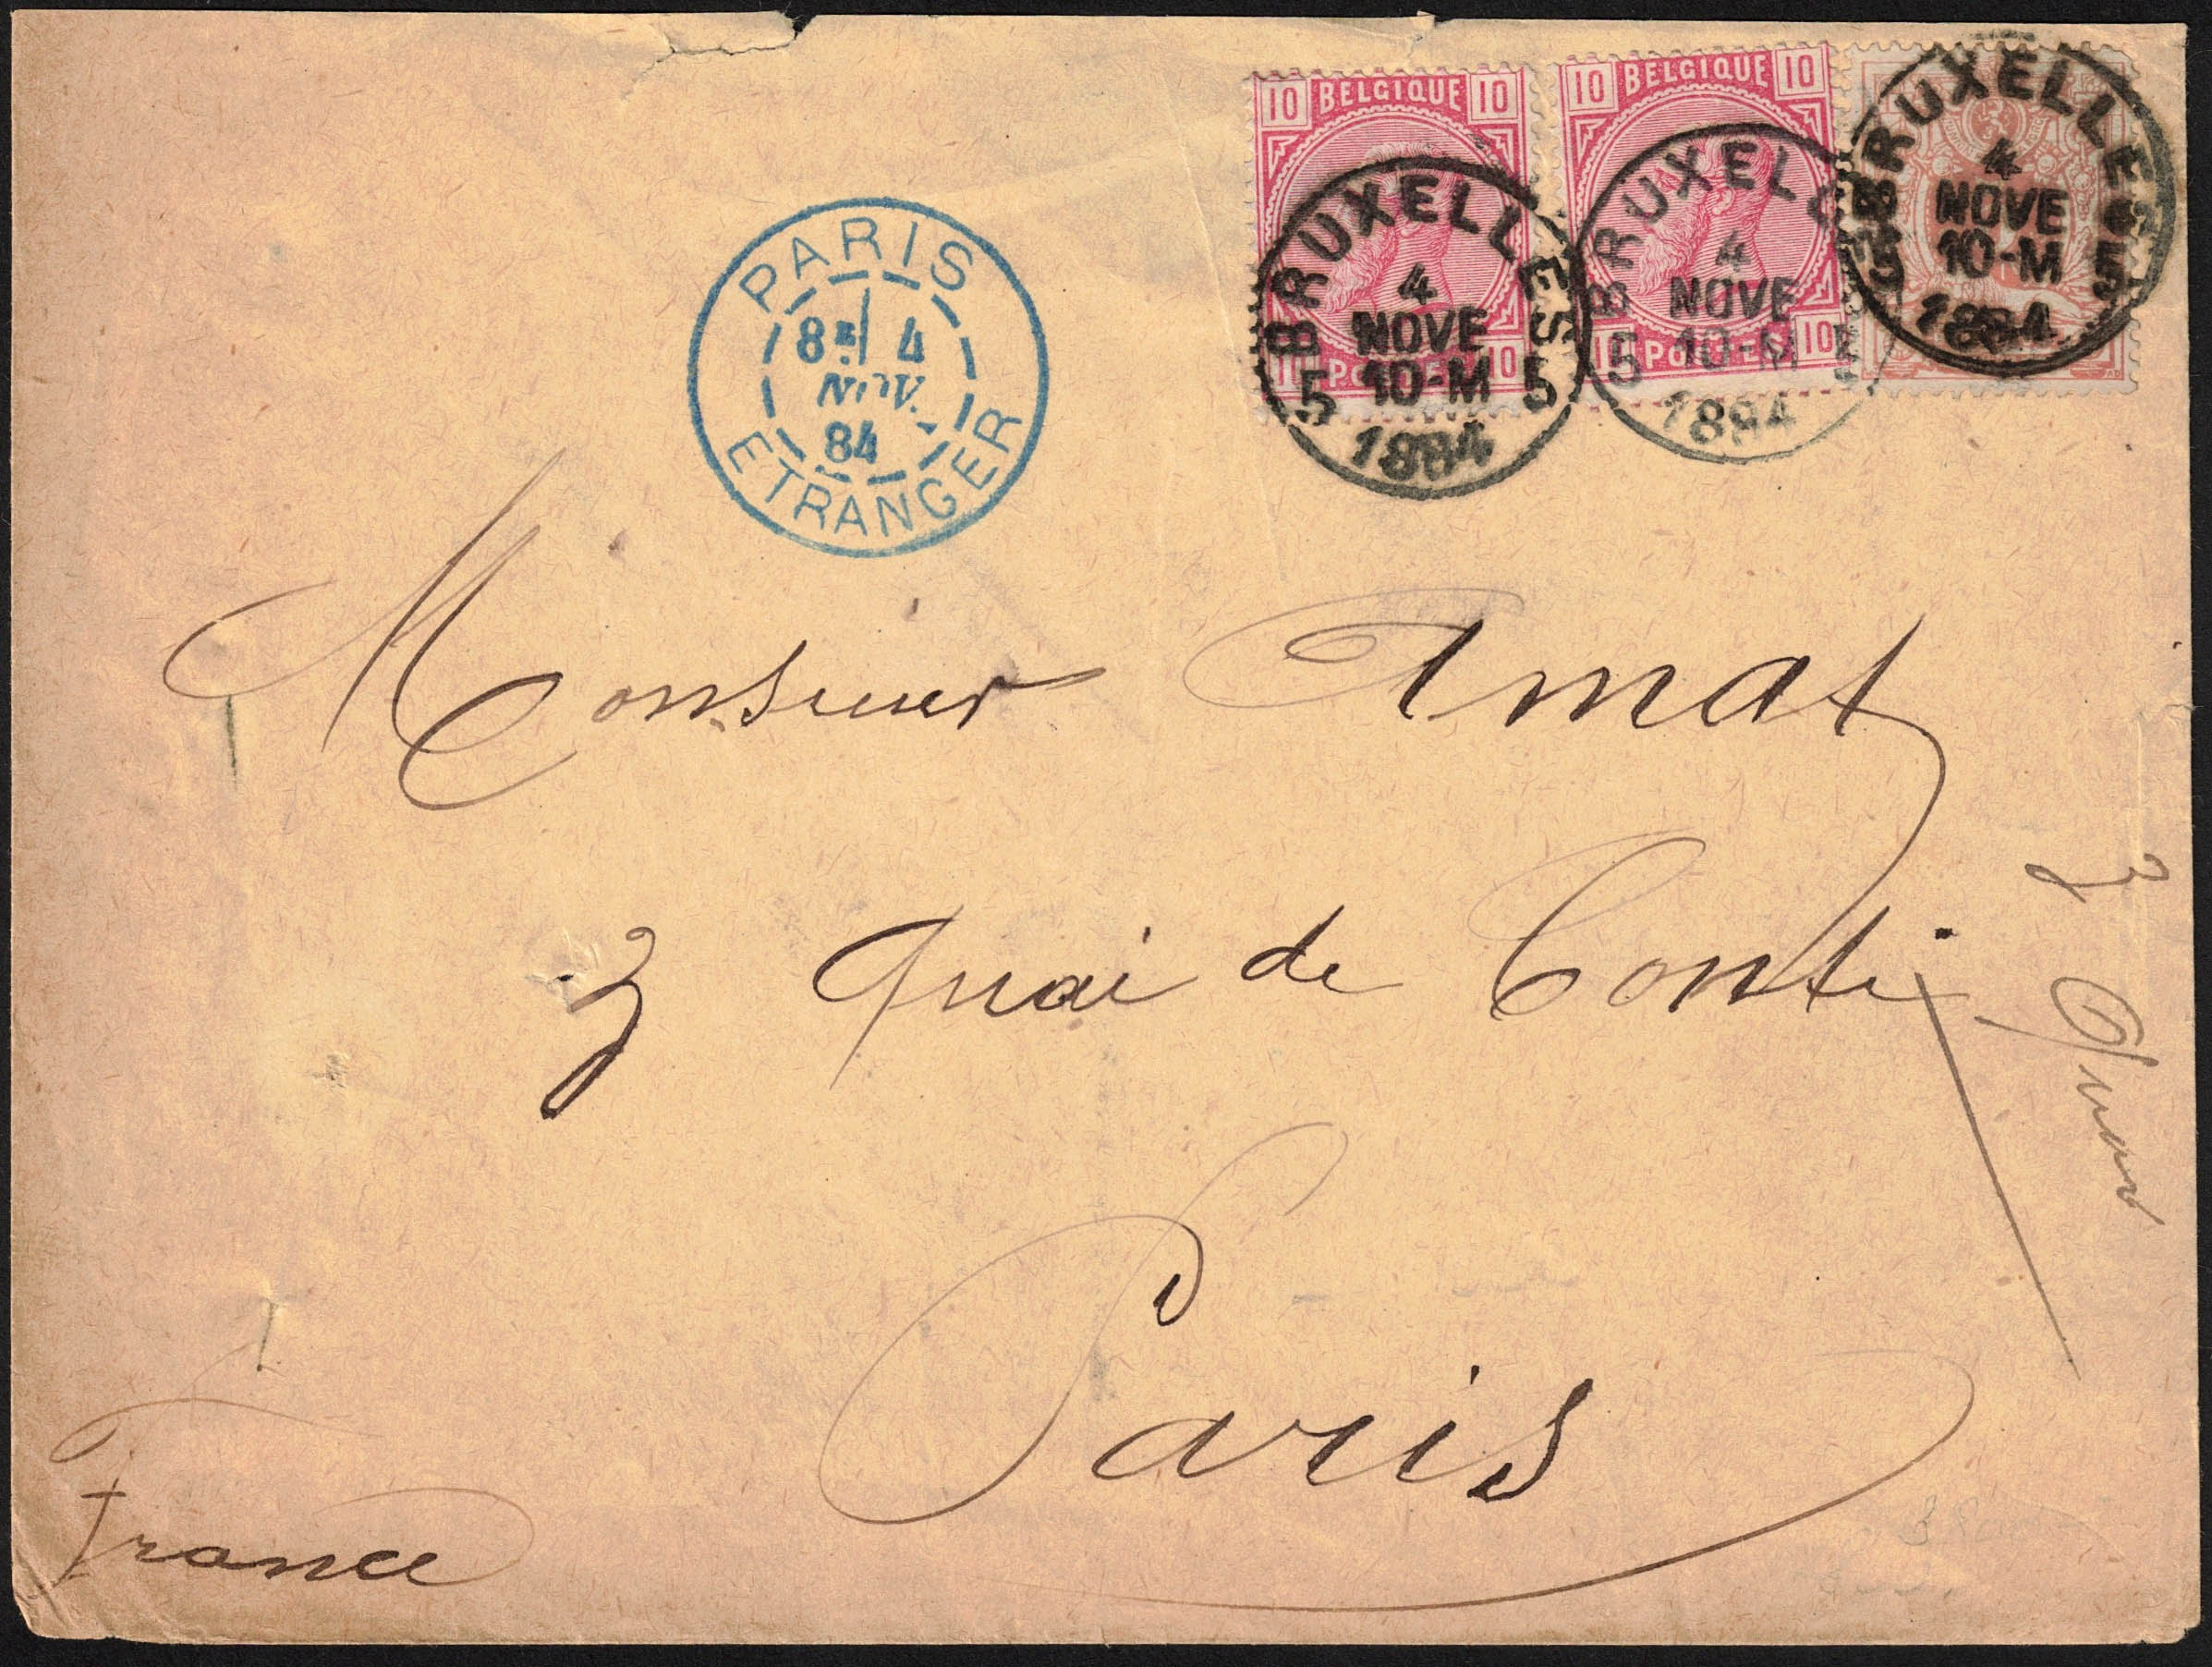 10 BELGIQUE 10
POSTES 10
10 BELGIQUE 10
POSTES 10
BRUXELLES
4
NOVE
10-M
5 5
1884
BRUXELLES
4
NOVE
10-M
5 5
1894
BRUXELLES
4
NOVE
10-M
5 5
1884
PARIS
8E 4
NOV.
84
ETRANGER
Monsieur Amat
3 Quai de Conti
Paris
France
3